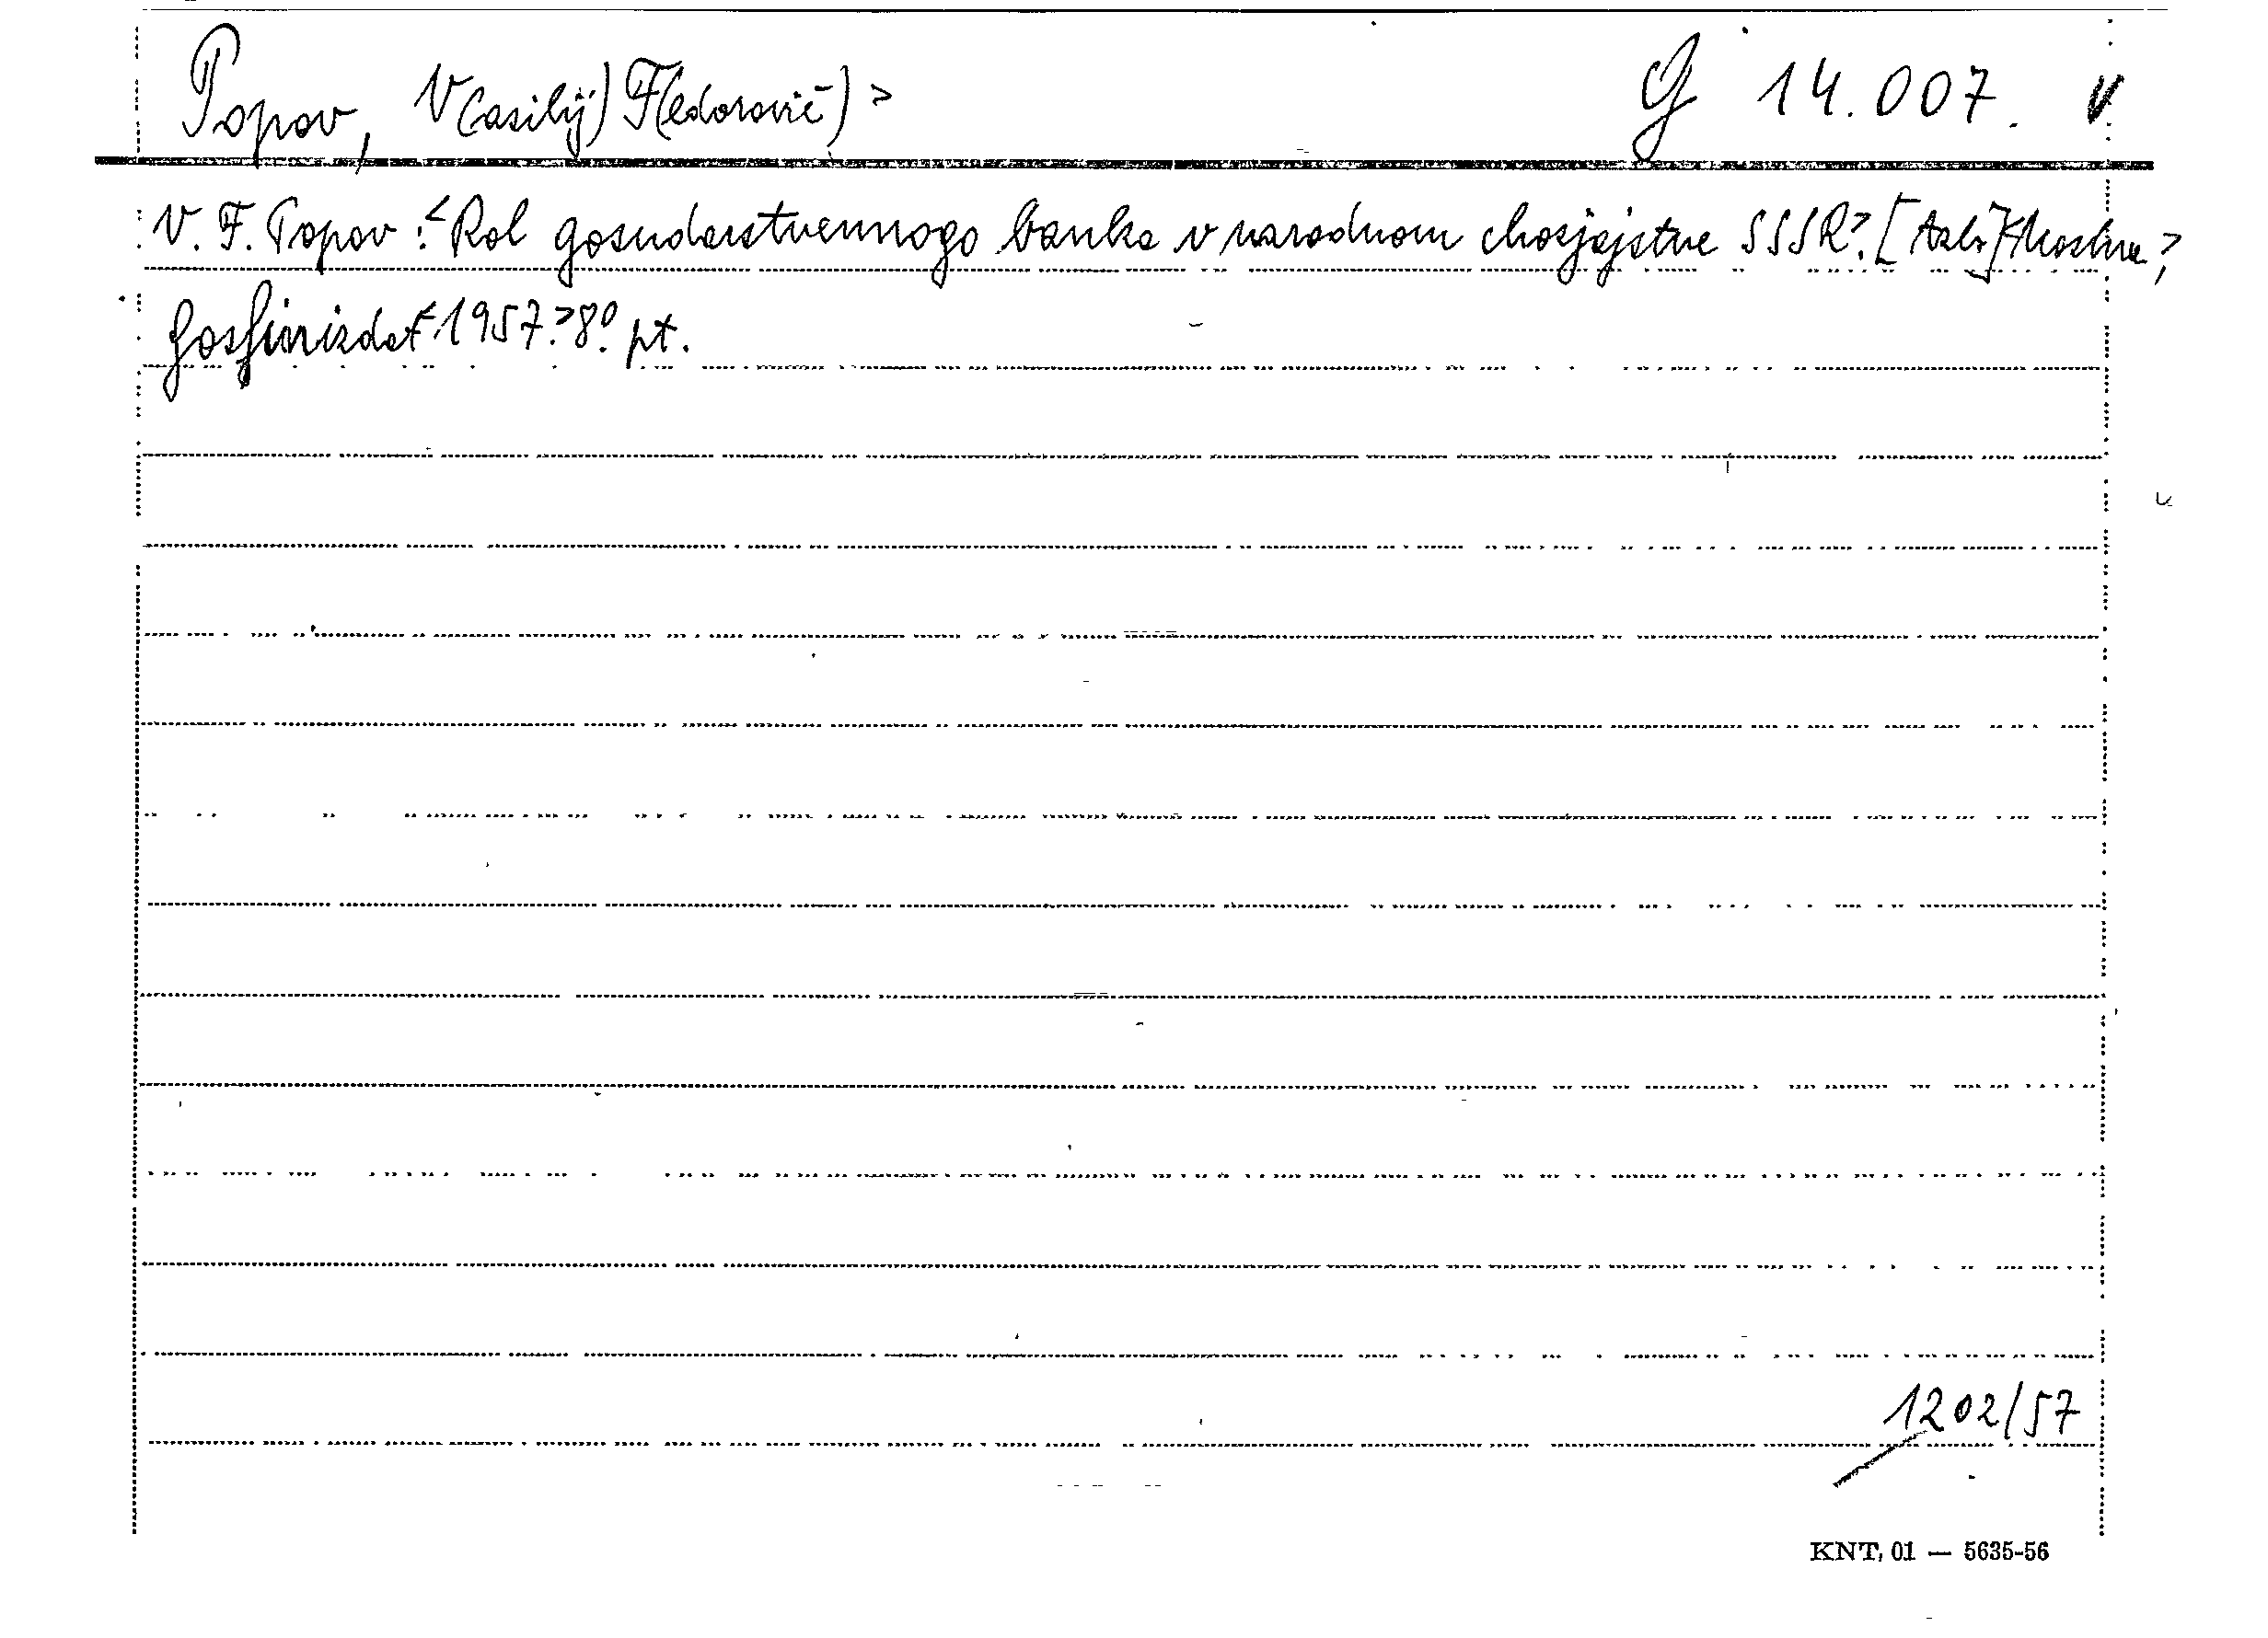 Popov, V(asilij) F(edorovič) > G 14.007. v
V. F. Popov: <Rol gosudarstvennogo banka v narodnom chozjajstve SSSR>. Moskva,
Gosfinizdat <1957.> 8° pt.
1202/57
KNT, 01 — 5635-56